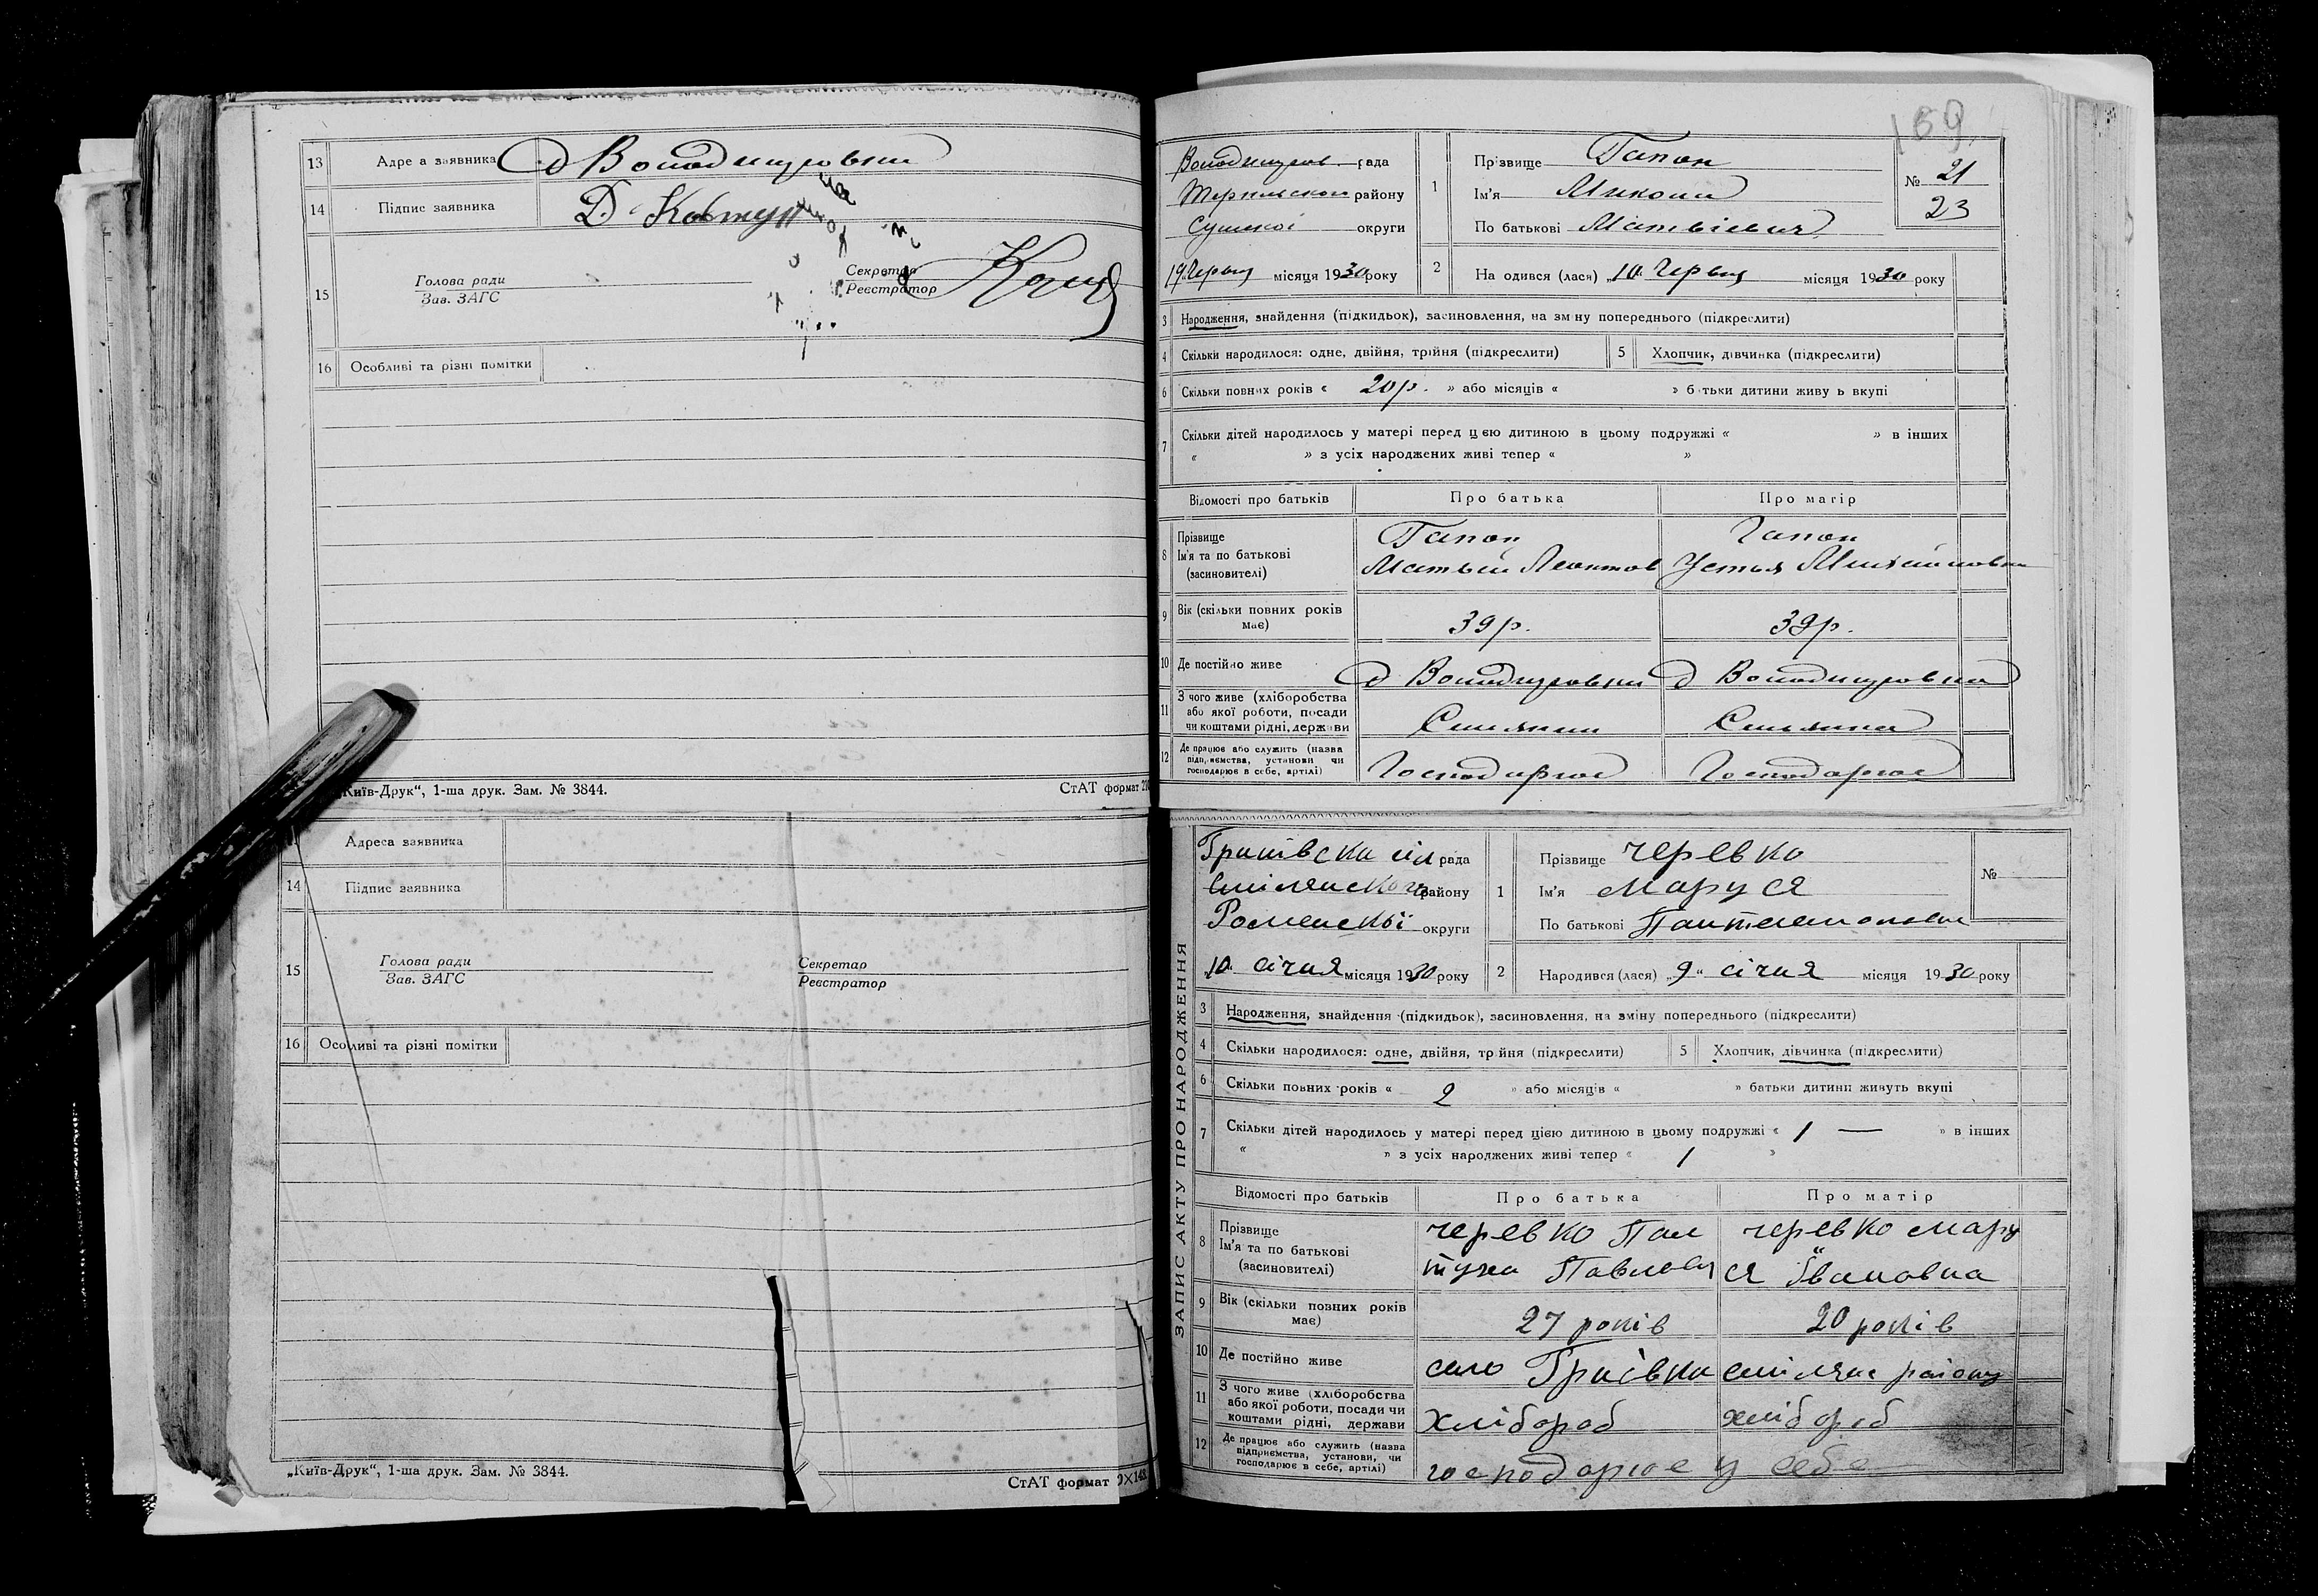 13 Адре а заявника д Володимировки
14 Підпис заявника Д Ковтун
15 Голова ради
Зав. ЗАГС
Секретар
Реєстратор
16 Особливі та різні помітки
„Київ-Друк“, 1-ша друк. Зам. № 3844.
СтАТ формат
Адреса заявника
14 Підпис заявника
15 Голова ради
Зав. ЗАГС
Секретар
Реєстратор
16 Особливі та різні помітки
„Київ-Друк“, 1-ша друк. Зам. № 3844.
СтАТ формат
169
Володимиров рада
району
Сумської округи
19 Червня місяця 1930 року
1 Прізвище Гапон
Ім'я Микола
По батькові Матвієвич
№ 21
23
2 На одився (лася) „10 Червня місяця 1930 року
3 Народження, знайдення (підкидьок), засиновлення, на зміну попереднього (підкреслити)
4 Скільки народилося: одне, двійня, трійня (підкреслити) 5 Хлопчик, дівчинка (підкреслити)
6 Скільки повних років « 20 р. » або місяців « » б тьки дитини живу ь вкупі
7 Скільки дітей народилось у матері перед цією дитиною в цьому подружжі « » в інших
« » з усіх народжених живі тепер « »
Відомості про батьків Про батька Про матір
8 Прізвище
Ім'я та по батькові
(засиновителі)
Гапон
Матвий Леонтов
Гапон
Устья Михайловна
9 Вік (скільки повних років має) 39 р. 39 р.
10 Де постійно живе д Володимировки д Володимировка
11 З чого живе (хліборобства
або якої роботи, посади
чи коштами рідні, держави
Селянин Селянка
12 Де працює або служить (назва
підприємства, установи чи
господарює в себе, артілі)
Господарює Господарює
ЗАПИС АКТУ ПРО НАРОДЖЕННЯ
рада
Смілянского району
Роменскої округи
10 січня місяця 1930 року
1 Прізвище Черевко
Ім'я Маруся
По батькові Пантелемоновна
№
2 Народився (лася) „9“ січня місяця 1930 року
3 Народження, знайдення (підкидьок), засиновлення, на зміну попереднього (підкреслити)
4 Скільки народилося: одне, двійня, трійня (підкреслити) 5 Хлопчик, дівчинка (підкреслити)
6 Скільки повних років « 2 » або місяців « » батьки дитини живуть вкупі
7 Скільки дітей народилось у матері перед цією дитиною в цьому подружжі « 1 — » в інших
« » з усіх народжених живі тепер « 1 »
Відомості про батьків Про батька Про матір
8 Прізвище
Ім'я та по батькові
(засиновителі)
Черевко
Черевко Мару
ся Ївановна
9 Вік (скільки повних років має) 27 років 20 років
10 Де постійно живе село Гриївка смілянс району
11 З чого живе (хліборобства
або якої роботи, посади чи
коштами рідні, держави
хлібороб хлібороб
12 Де працює або служить (назва
підприємства, установи, чи
господарює в себе, артілі)
господарює у себе